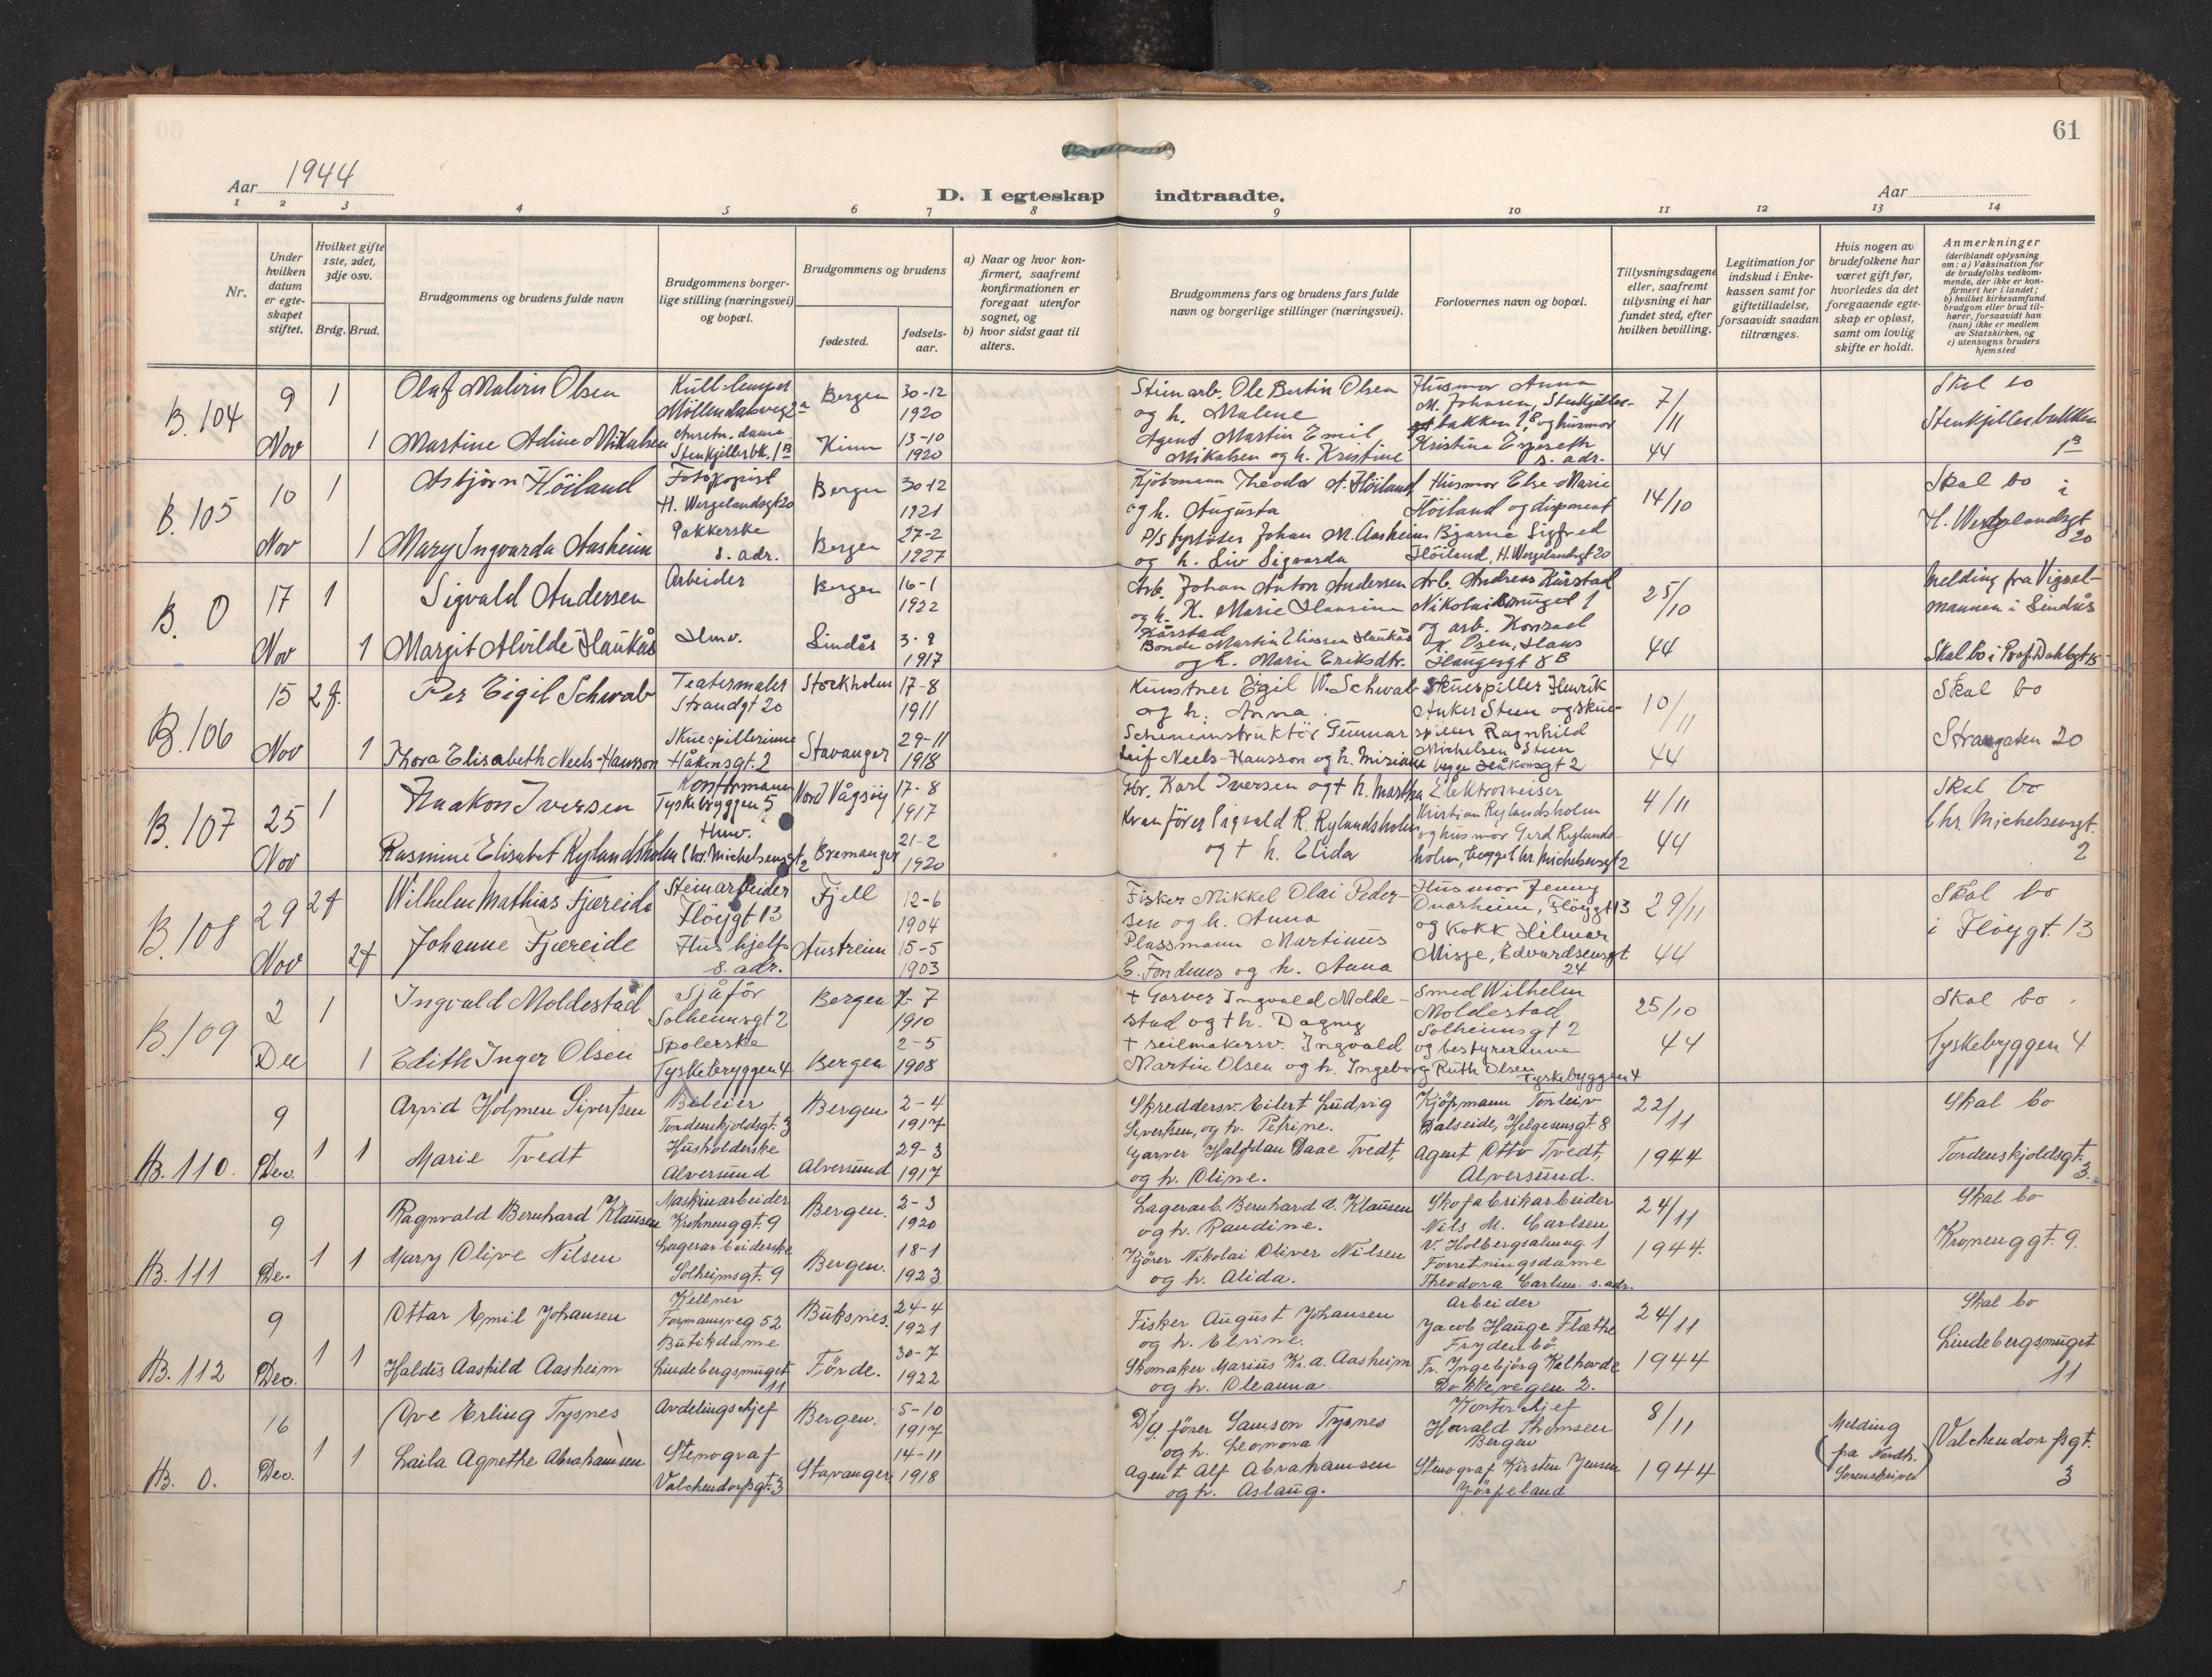 61
Aar 1944
D. I egteskap indtraadte.
Aar
1 2 3 4 5 6 7 8 9 10 11 12 13 14
Nr.
Under
hvilken
datum
er egte-
skapet
stiftet.
Hvilket gifte
1ste, 2det,
3dje osv.
Brdg. Brud.
Brudgommens og brudens fulde navn
Brudgommens borger-
lige stilling (næringsvei)
og bopæl.
Brudgommens og brudens
fødested.
fødsels-
aar.
a) Naar og hvor kon-
firmert, saafremt
konfirmationen er
foregaat utenfor
sognet, og
b) hvor sidst gaat til
alters.
Brudgommens fars og brudens fars fulde
navn og borgerlige stillinger (næringsvei).
Forlovernes navn og bopæl.
Tillysningsdagene
eller, saafremt
tillysning ei har
fundet sted, efter
hvilken bevilling.
Legitimation for
indskud i Enke-
kassen samt for
giftetilladelse,
forsaavidt saadan
tiltrænges.
Hvis nogen av
brudefolkene har
været gift før,
hvorledes da det
foregaaende egte-
skap er opløst,
samt om lovlig
skifte er holdt.
Anmerkninger
(deriblandt oplysning
om: a) Vaksination for
de brudefolks vedkom-
mende, der ikke er kon-
firmert her i landet;
b) hvilket kirkesamfund
brudgom eller brud til-
hører, forsaavidt han
(hun) ikke er medlem
av Statskirken, og
c) utensogns bruders
hjemsted
B. 104
9
Nov
1
1
Olaf Malvin Olsen
Martine Adine Mikalsen
Kull-lemper
Möllendalsveg 2a
dame
Stenkjellerbk. 1B
Bergen
Kinn
30-12
1920
13-10
1920
Steinarb. Ole Bertin Olsen
og h. Malene
Agent Martin Emil
Mikalsen og h. Kristine
Husmor Anna
M. Johnsen, Stenkjeller-
bakken 1B og husmor
Kristine Espeseth
s. adr.
7/
/11
44
Skal bo
Stenkjellerbakken
1B
B. 105
10
Nov
1
1
Asbjörn Höiland
Mary Ingvarda Aasheim
Fotokopist
H. Wergelandsgt 20
Pakkerske
s. adr.
Bergen
Bergen
30-12
1921
27-2
1927
Kjötmann Theodor A. Höiland
og h. Augusta
P/S fyrböter Johan M. Aasheim
og h. Liv Sigvarda
Husmor Else Marie
Höiland og disponent
Bjarne Sigfred
Höiland, H. Wergelandsgt 20
14/10
Skal bo i
H. Wergelandsgt
20
B. 0
17
Nov
1
1
Sigvald Andersen
Margit Alvilde Haukås
Arbeider
Hmv.
Bergen
Lindås
16-1
1922
3-9
1917
Arb. Johan Anton Andersen
og h. K. Marie Hansine
Kårstad
Bonde Martin Eliassen Haukås
og h. Marie Eriksdtr.
Arb. Andreas Kårstad
Nikolaismuget 1
og arb. Konrad
Osen, Hans
Haugesgt 8B
25/
/10
44
Melding fra Vigsel-
mannen i Lindås
Skal bo i Prof. Dahlsgt 15
B. 106
15
Nov
2 f.
1
Per Eigil Schwab
Thora Elisabeth Neels-Hansson
Teatermaler
Strandgt 20
Skuespillerinne
Håkonsgt. 2
Stockholm
Stavanger
17-8
1911
29-11
1918
Kunstner Eigil W. Schwab
og h. Anna
Sceneinstruktör Gunnar
Leif Neels-Hansson og h. Miriam
Skuespiller Henrik
Anker Steen og skue-
spiller Ragnhild
Michelsen Steen
begge Håkonsgt 2
10/
/11
44
Skal bo
Strangaten 20
B. 107
25
Nov
1
Haakon Iversen
Rasmine Elisabet Rylandsholm
Kontormann
Tyskebryggen 5
Hmv.
Chr. Michelsensgt 2
Nord Vågsöy
Bremanger
17-8
1917
21-2
1920
Gbr. Karl Iversen og † h. Martha
Kranförer Sigvald R. Rylandsholm
og † h. Elida
Elektrosveiser
Kristian Rylandsholm
og husmor Gerd Rylands-
holm, begge Chr. Michelsensgt 2
4/11
44
Skal bo
Chr. Michelsensgt.
2
B. 108
29
Nov
2 f
2 f
Wilhelm Mathias Fjæreide
Johanne Fjæreide
Steinarbeider
Flöygt 13
Hushjelp
s. adr.
Fjell
Austreim
12-6
1904
15-5
1903
Fisker Mikkel Olai Peder-
sen og h. Anna
Plassmann Martinus
E. Fondenes og h. Anna
Husmor Jenny
Ovarheim, Flöygt 13
og kokk Hilmar
Misje, Edvardsensgt
24
29/11
44
Skal bo
i Flöygt. 13
B. 109
2
Dec
1
1
Ingvald Moldestad
Edith Inger Olsen
Sjåför
Solheimsgt 2
Spolerske
Tyskebryggen 4
Bergen
Bergen
7
1910
2-5
1908
† Garver Ingvald Molde-
stad og † h. Dagny
† seilmakersv. Ingvald
Martin Olsen og h. Ingeborg
Smed Wilhelm
Moldestad
Solheimsgt 2
og bestyrerinne
Ruth Olsen
Tyskebryggen 4
25/10
44
Skal bo
Tyskebryggen 4
B. 110.
9
Dec.
1
1
Arvid Holmen Sivertsen
Marie Tvedt
Bileier
Tordenskjoldsgt. 3
Husholderske
Alversund
Bergen
Alversund
2-4
1917
29-3
1917
Skreddersv. Eilert Ludvig
Sivertsen, og h. Petrine.
Garver Halfdan Daae Tvedt,
og h. Oline.
Kjöpmann Torleiv
Dalseide, Helgesensgt. 8
Agent Otto Tvedt,
Alversund.
22/
/11
1944
Skal bo
Tordenskjoldsgt.
3.
B. 111
9
De.
1
1
Ragnvald Bernhard Klausen
Mary Olive Nilsen
Maskinarbeider
Krohnenggt. 9
Lagerarbeiderske
Solheimsgt. 9
Bergen.
Bergen.
2-3
1920
18-1
1923
Lagerarb. Bernhard A. Klausen
og h. Raudine.
Kjörer Nikolai Oliver Nilsen
og h. Alida.
Skofabrikarbeider
Nils M. Carlsen
V. Holbergsalmng. 1
Forretningsdame
Theodora Carlsen. s. adr.
24/
/11
1944.
Skal bo
Kronenggt. 9.
B. 112
9
Dec.
1
1
Ottar Emil Johansen
Haldis Aashild Aasheim
Kellner
Formannsveg 52
Butikdame
Lindebergsmuget
11
Buksnes.
Förde.
24-4
1921
30-7
1922
Fisker August Johansen
og h. Elvine.
Skomaker Marius Kr. A. Aasheim
og h. Oleanna
Arbeider
Jacob Hauge Flæthe
Frydenbö
Fr. Ingebjörg Kalhovde
Dokkevegen 2.
24/
/11
1944
Skal bo
Lindebergsmuget
11
B. 0.
16
Dec.
1
1
Ove Erling Tysnes
Laila Agnethe Abrahamsen
Avdelingschef
Stenograf
Valchendorfsgt. 3
Bergen.
Stavanger
5-10
1917
14-11
1918
D/g. förer Samson Tysnes
og h. Leonora
Agent Alf Abrahamsen
og h. Aslaug.
Kontorchef
Harald Thomsen
Bergen
Stenograf Kirsten Jensen
Jörpeland
8/
/11
1944
Melding
fra Nordh.
Sorenskriver
Valchendorfsgt.
3